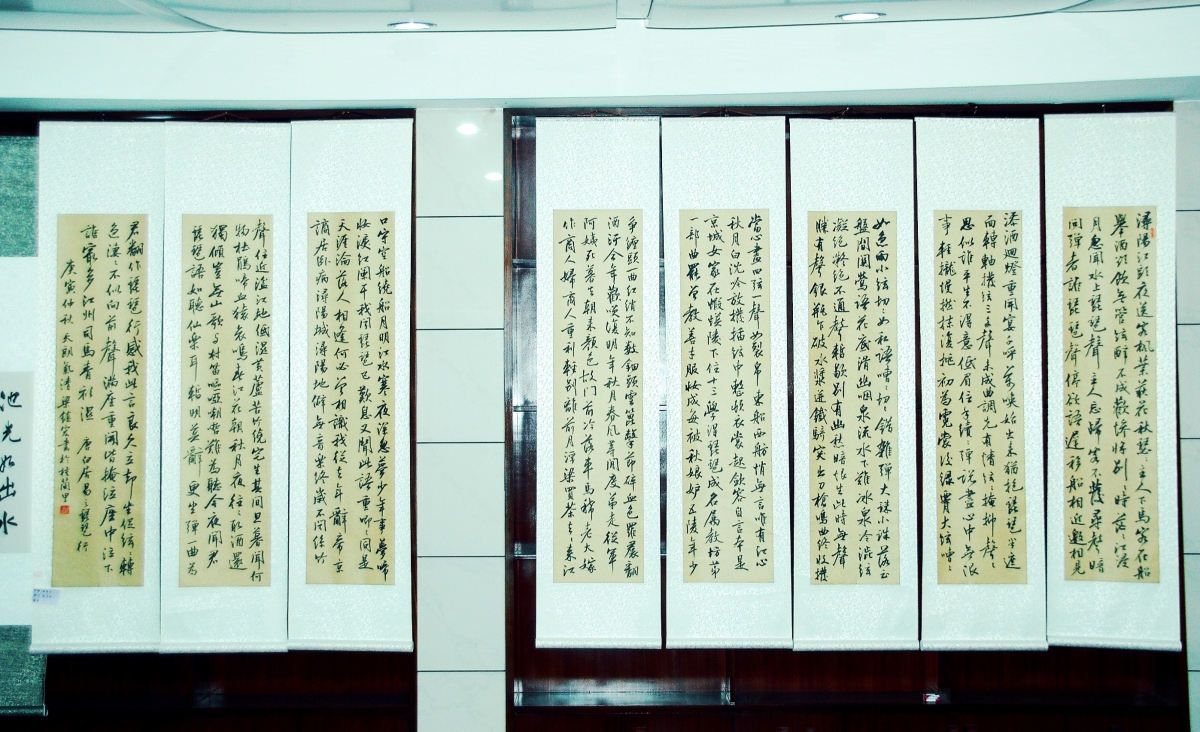 潯陽江頭夜送客楓葉荻花秋瑟〻主人下馬客在船
舉酒欲飲無管弦醉不成歡慘將別〻時茫〻江浸
月忽聞水上琵琶聲主人忘歸客不發尋聲暗
問彈者誰琵琶聲停欲語遲移船相近邀相見
添酒迴燈重開宴千呼萬喚始出來猶抱琵琶半遮
面轉軸撥弦三兩聲未成曲調先有情弦〻掩抑聲〻
思似訴平生不得意低眉信手續〻彈說盡心中無限
事輕攏慢撚抹復挑初為霓裳後綠腰大弦嘈〻
如急雨小弦切〻如私語嘈〻切〻錯雜彈大珠小珠落玉
盤間關鶯語花底滑幽咽泉流水下難冰泉冷澀弦
凝絕凝絕不通聲暫歇別有幽愁暗恨生此時無聲
勝有聲銀瓶乍破水漿迸鐵騎突出刀槍鳴曲終收撥
當心畫四弦一聲如裂帛東船西舫悄無言唯有江心
秋月白沈吟放撥插弦中整頓衣裳起斂容自言本是
京城女家在蝦蟆陵下住十三學得琵琶成名屬教坊第
一部曲罷曾教善才服妝成每被秋娘妒五陵年少
爭纏頭一曲紅綃不知數鈿頭雲篦擊節碎血色羅裙翻
酒污今年歡笑復明年秋月春風等閒度弟走從軍
阿姨死暮去朝來顏色故門前冷落車馬稀老大嫁
作商人婦商人重利輕別離前月浮梁買茶去去來江
口守空船繞船月明江水寒夜深忽夢少年事夢啼
妝淚紅闌干我聞琵琶已歎息又聞此語重唧〻同是
天涯淪落人相逢何必曾相識我從去年辭帝京
謫居臥病潯陽城潯陽地僻無音樂終歲不聞絲竹
聲住近湓江地低濕黃蘆苦竹繞宅生其間旦暮聞何
物杜鵑啼血猿哀鳴春江花朝秋月夜往〻取酒還
獨傾豈無山歌與村笛嘔啞嘲哳難為聽今夜聞君
琵琶語如聽仙樂耳暫明莫辭更坐彈一曲為
君翻作琵琶行感我此言良久立却坐促弦〻轉
急淒〻不似向前聲滿座重聞皆掩泣座中泣下
誰最多江州司馬青衫濕 唐白居易之琵琶行
庚寅仲秋天朗氣清
池光如出水